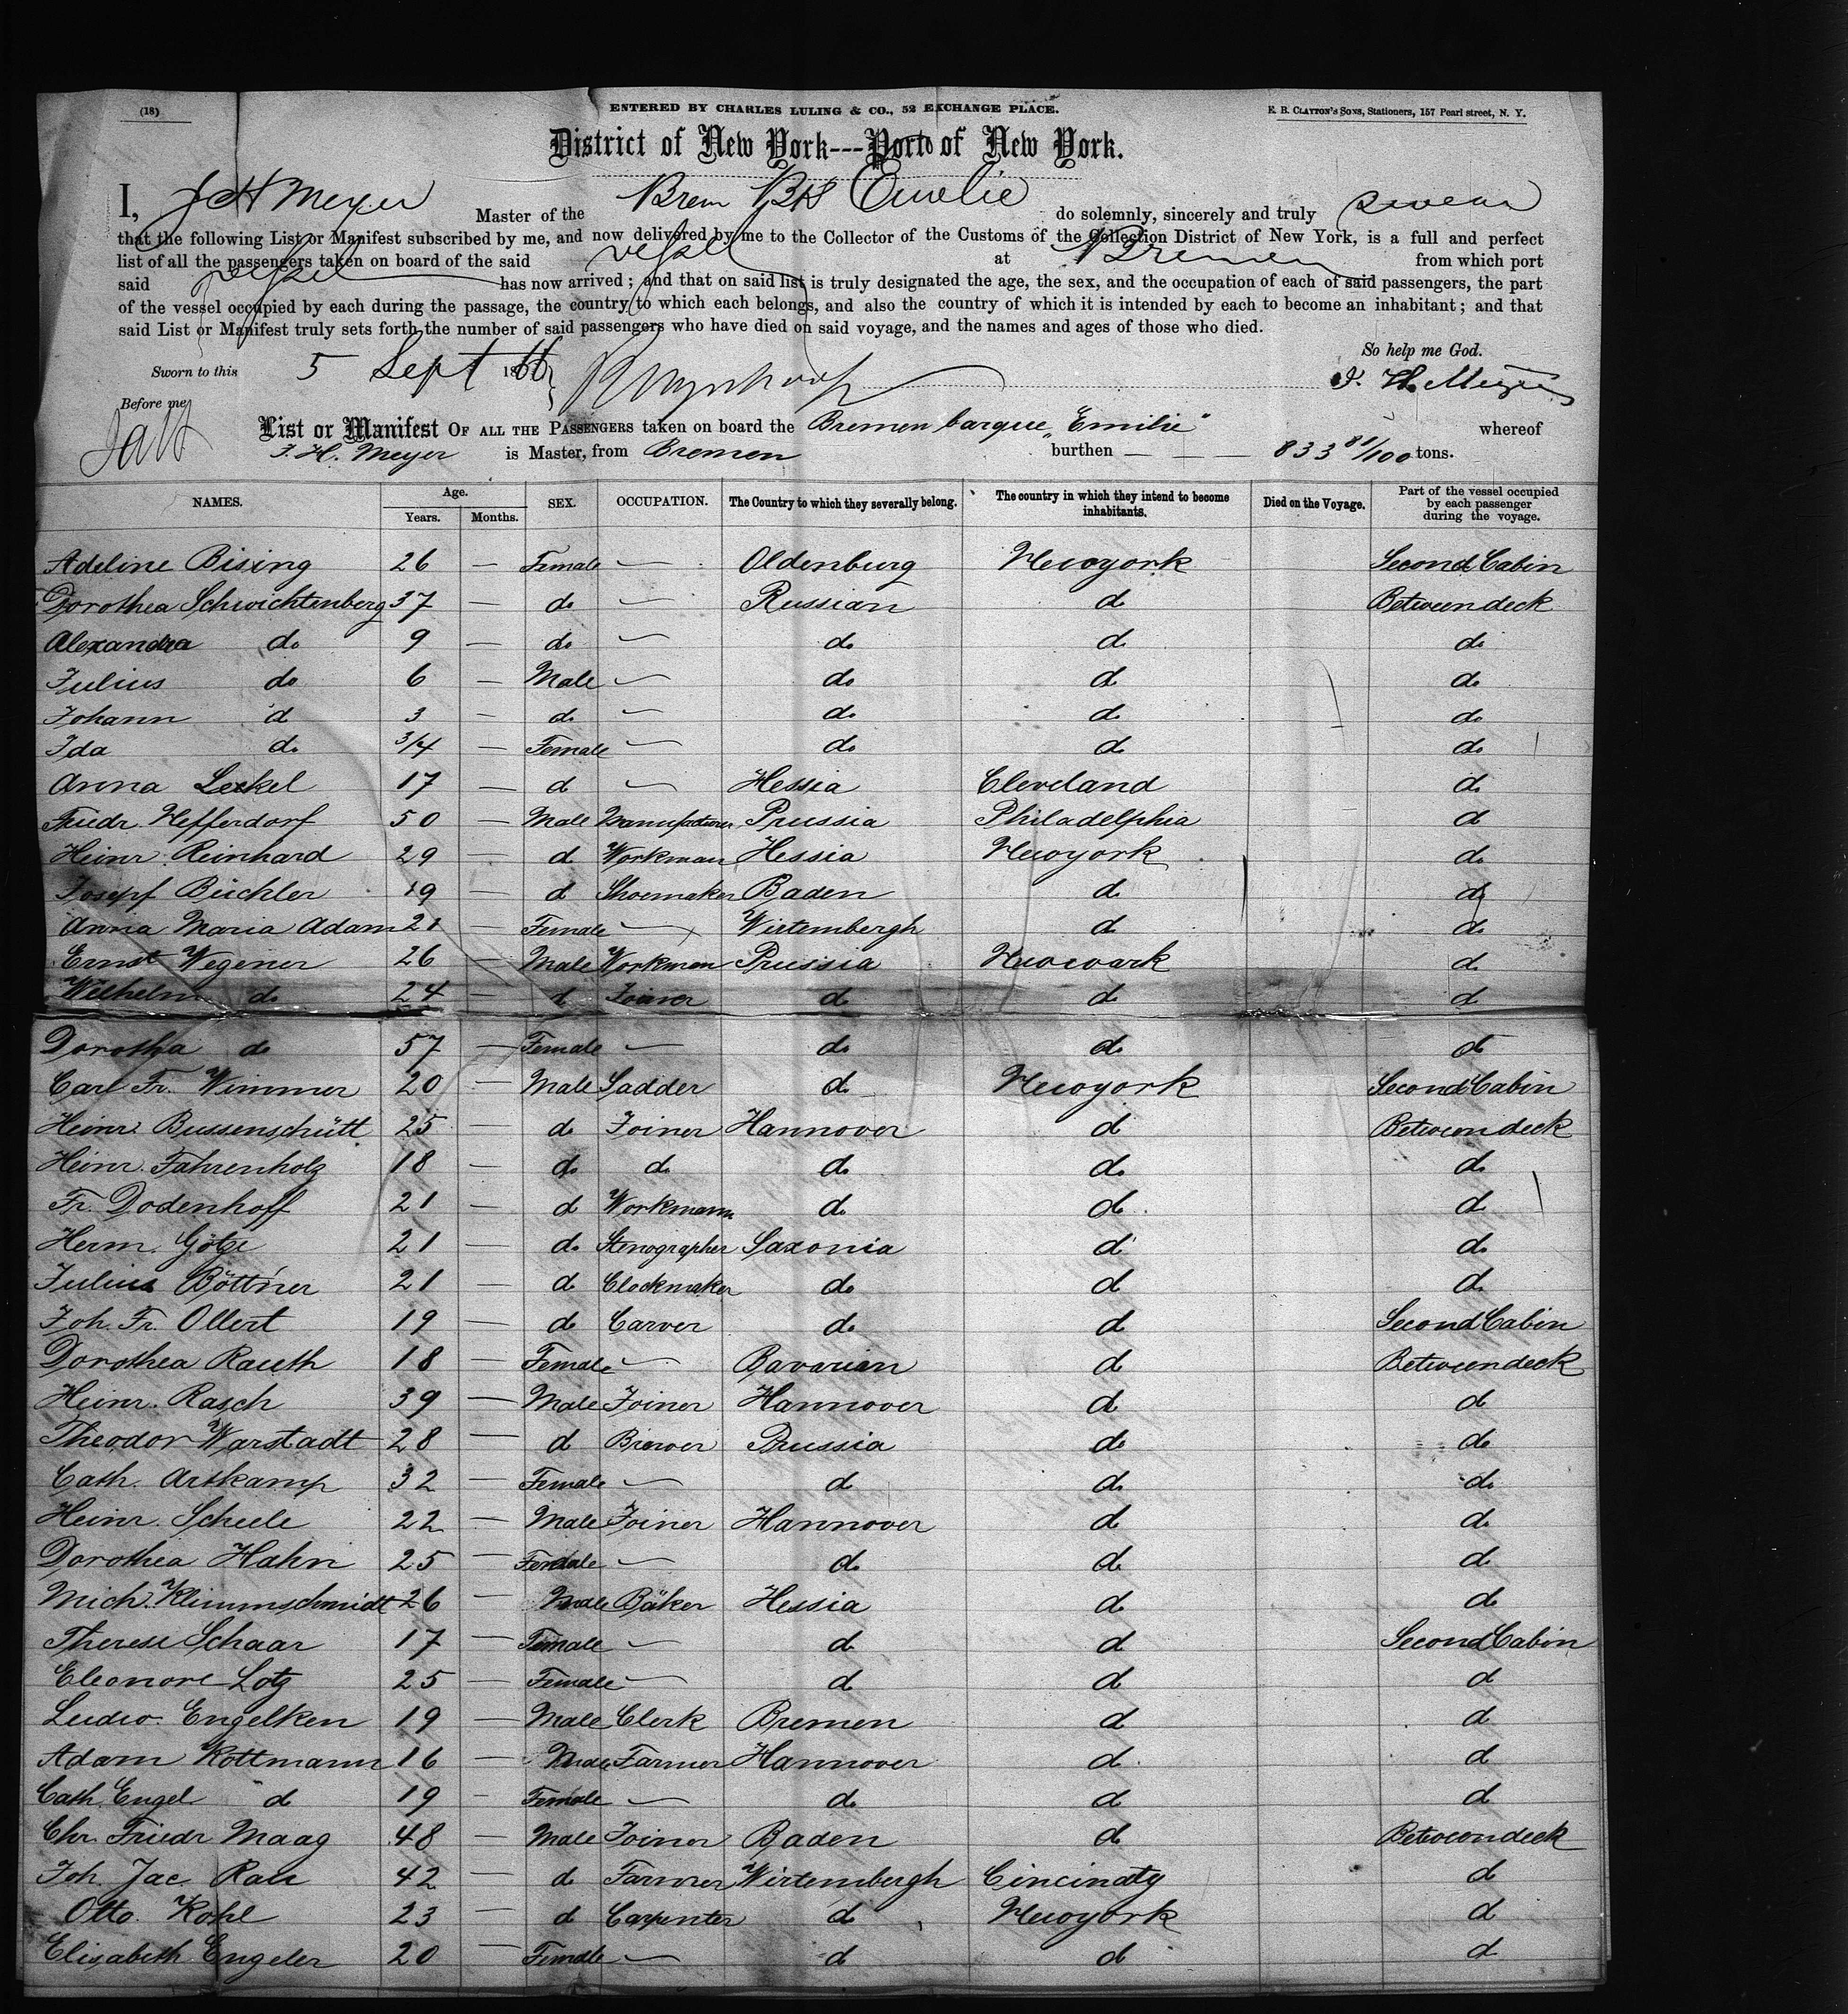 (18)
ENTERED BY CHARLES LULING & CO., 52 EXCHANGE PLACE.
E. B. CLAYTON'S SONS, Stationers, 157 Pearl street, N. Y.
District of New York---Port of New York.
I, J H Meyer Master of the Brem Bk Emelie do solemnly, sincerely and truly swear
that the following List or Manifest subscribed by me, and now delivered by me to the Collector of the Customs of the Collection District of New York, is a full and perfect
list of all the passengers taken on board of the said vessel at Bremen from which port
said vessel has now arrived; and that on said list is truly designated the age, the sex, and the occupation of each of said passengers, the part
of the vessel occupied by each during the passage, the country to which each belongs, and also the country of which it is intended by each to become an inhabitant; and that
said List or Manifest truly sets forth the number of said passengers who have died on said voyage, and the names and ages of those who died.
So help me God.
Sworn to this 5 Sept 1866 J. H. Meyer
Before me
List or Manifest OF ALL THE PASSENGERS taken on board the Bremen barque "Emilie" whereof
J. H. Meyer is Master, from Bremen burthen — — — 833 81/100 tons.
NAMES. Age. Years. Months. SEX. OCCUPATION. The Country to which they severally belong. The country in which they intend to become inhabitants. Died on the Voyage. Part of the vessel occupied by each passenger during the voyage.
Adeline Bising 26 — Female — Oldenburg Newyork Second Cabin
Dorothea Schwichtenberg 37 — do — Russian d Betweendeck
Alexandra do 9 — do — do d do
Julius do 6 — Male — do d do
Johann d 3 — do — do d do
Ida do 3/4 — Female — do d do
Anna Leckel 17 — d — Hessia Cleveland d
Friedr. Hefferdorf 50 — Male Manufacturer Prussia Philadelphia d
Heinr. Reinhard 29 — d Workman Hessia Newyork do
Josepf Büchler 19 — d Shoemaker Baden d d
Anna Maria Adam 21 — Female — Wirtembergh d d
Ernst Wegener 26 — Male Workman Prussia Newwark d
Wilhelm do 24 — d Joiner d d d
Dorothea do 57 — Female — do do d
Carl Fr. Wimmer 20 — Male Sadder d Newyork Second Cabin
Heinr. Bussenschütt 25 — do Joiner Hannover d Betweendeck
Heinr. Fahrenholz 18 — do do do do d
Fr. Dodenhoff 21 — d Workmann d do d
Herm. Götze 21 — do Stenographer Saxonia d do
Julius Böttner 21 — d Clockmaker do d d
Joh. Fr. Ollert 19 — do Carver do d Second Cabin
Dorothea Rauth 18 — Female — Bavarian d Betweendeck
Heinr. Rasch 39 — Male Joiner Hannover d d
Theodor Warstadt 28 — d Brewer Prussia do do
Cath. Artkamp 32 — Female — d d do
Heinr. Scheele 22 — Male Joiner Hannover d d
Dorothea Hahn 25 — Female — d d d
Mich. Klimmschmidt 26 — Male Bäker Hessia d d
Therese Schaar 17 — Female — d d Second Cabin
Eleonore Lotz 25 — Female — d d d
Ludw. Engelken 19 — Male Clerk Bremen d d
Adam Kottmann 16 — Male Farmer Hannover d d
Cath. Engel d 19 — Female — d d d
Chr. Friedr Maag 48 — Male Joiner Baden d Betweendeck
Joh. Jac. Rau 42 — d Farmer Wirtembergh Cincinaty d
Otto Kohl 23 — d Carpenter d Newyork d
Elisabeth Engeler 20 — Female — d d d